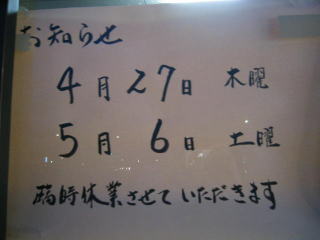 お知らせ
4月27日 木曜
5月6日 土曜
臨時休業させていただきます